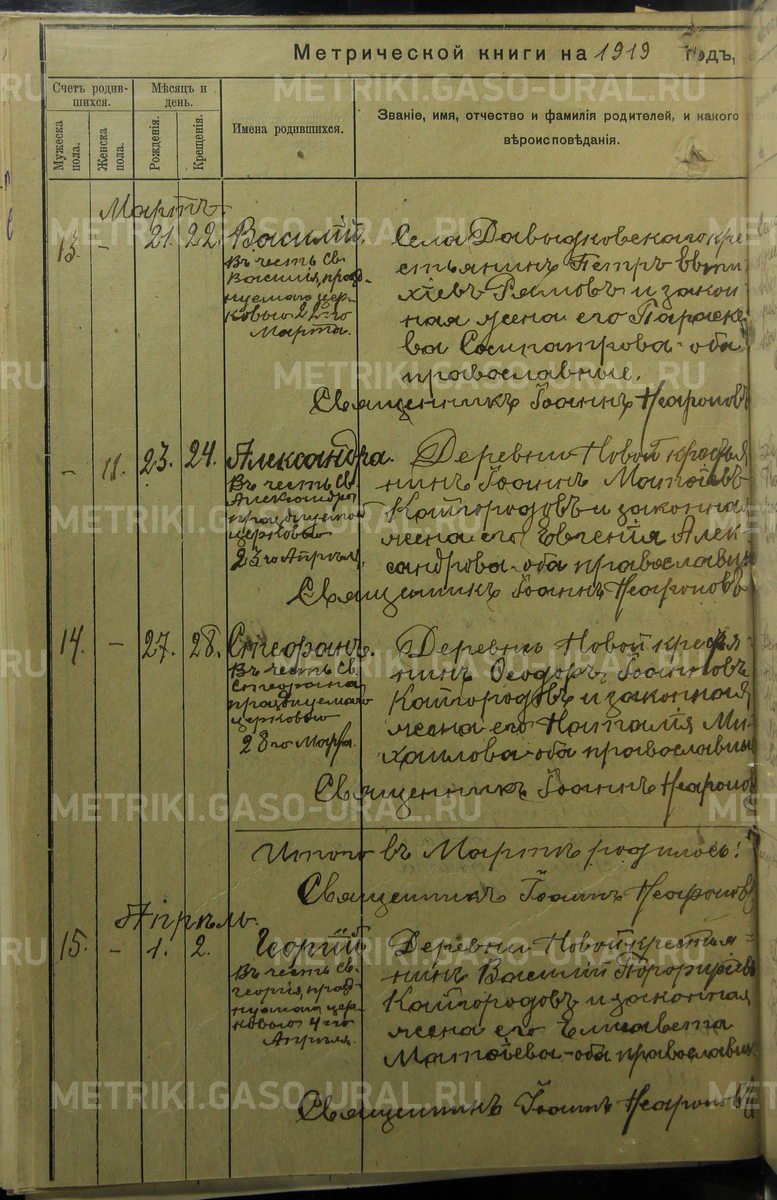 Метрической книги на 1919 годъ,
Счетъ родившихся.
Мѣсяцъ и день.
Имена родившихся.
Званіе, имя, отчество и фамилія родителей, и какого вѣроисповѣданія.
Мужеска пола.
Женска пола.
Рожденія.
Крещенія.
Мартъ
13. - 21. 22. Василій.
Въ честь св.
Василія, празд-
нуемаго цер-
ковью 22-го
Марта.
Села Давыдковскаго кре-
стьянинъ Петръ
Рямовъ и закон-
ная жена его Параске-
ва Сосипатрова - оба
православные.
Священникъ Іоаннъ
- 11. 23. 24. Александра.
Въ честь св.
Александры
празднуемой
церковью
23го Апрѣля.
Деревни Новой крестья-
нинъ Іоаннъ Матѳіевъ
Кайгородовъ и законная
жена его Евгенія Алек-
сандрова - оба православные
Священникъ Іоаннъ
14. - 27. 28. Стефанъ.
Въ честь Св.
Стефана
празднуемаго
церковью
28го Марта.
Деревни Новой крестья-
нинъ Ѳеодоръ Іоанновъ
Кайгородовъ и законная
жена его Наталія Ми-
хаилова - оба православные
Священникъ Іоаннъ
Итого въ Мартѣ родилось:
Священникъ Іоаннъ
Апрѣль.
15. - 1. 2. Георгій
Въ честь Св.
Георгія, празд-
нуемаго цер-
ковью 4го
Апрѣля.
Деревни Новой крестья-
нинъ Василій Порфиріевъ
Кайгородовъ и законная
жена его Елисавета
Матѳіева - оба православные
Священникъ Іоаннъ
METRIKI.GASO-URAL.RU